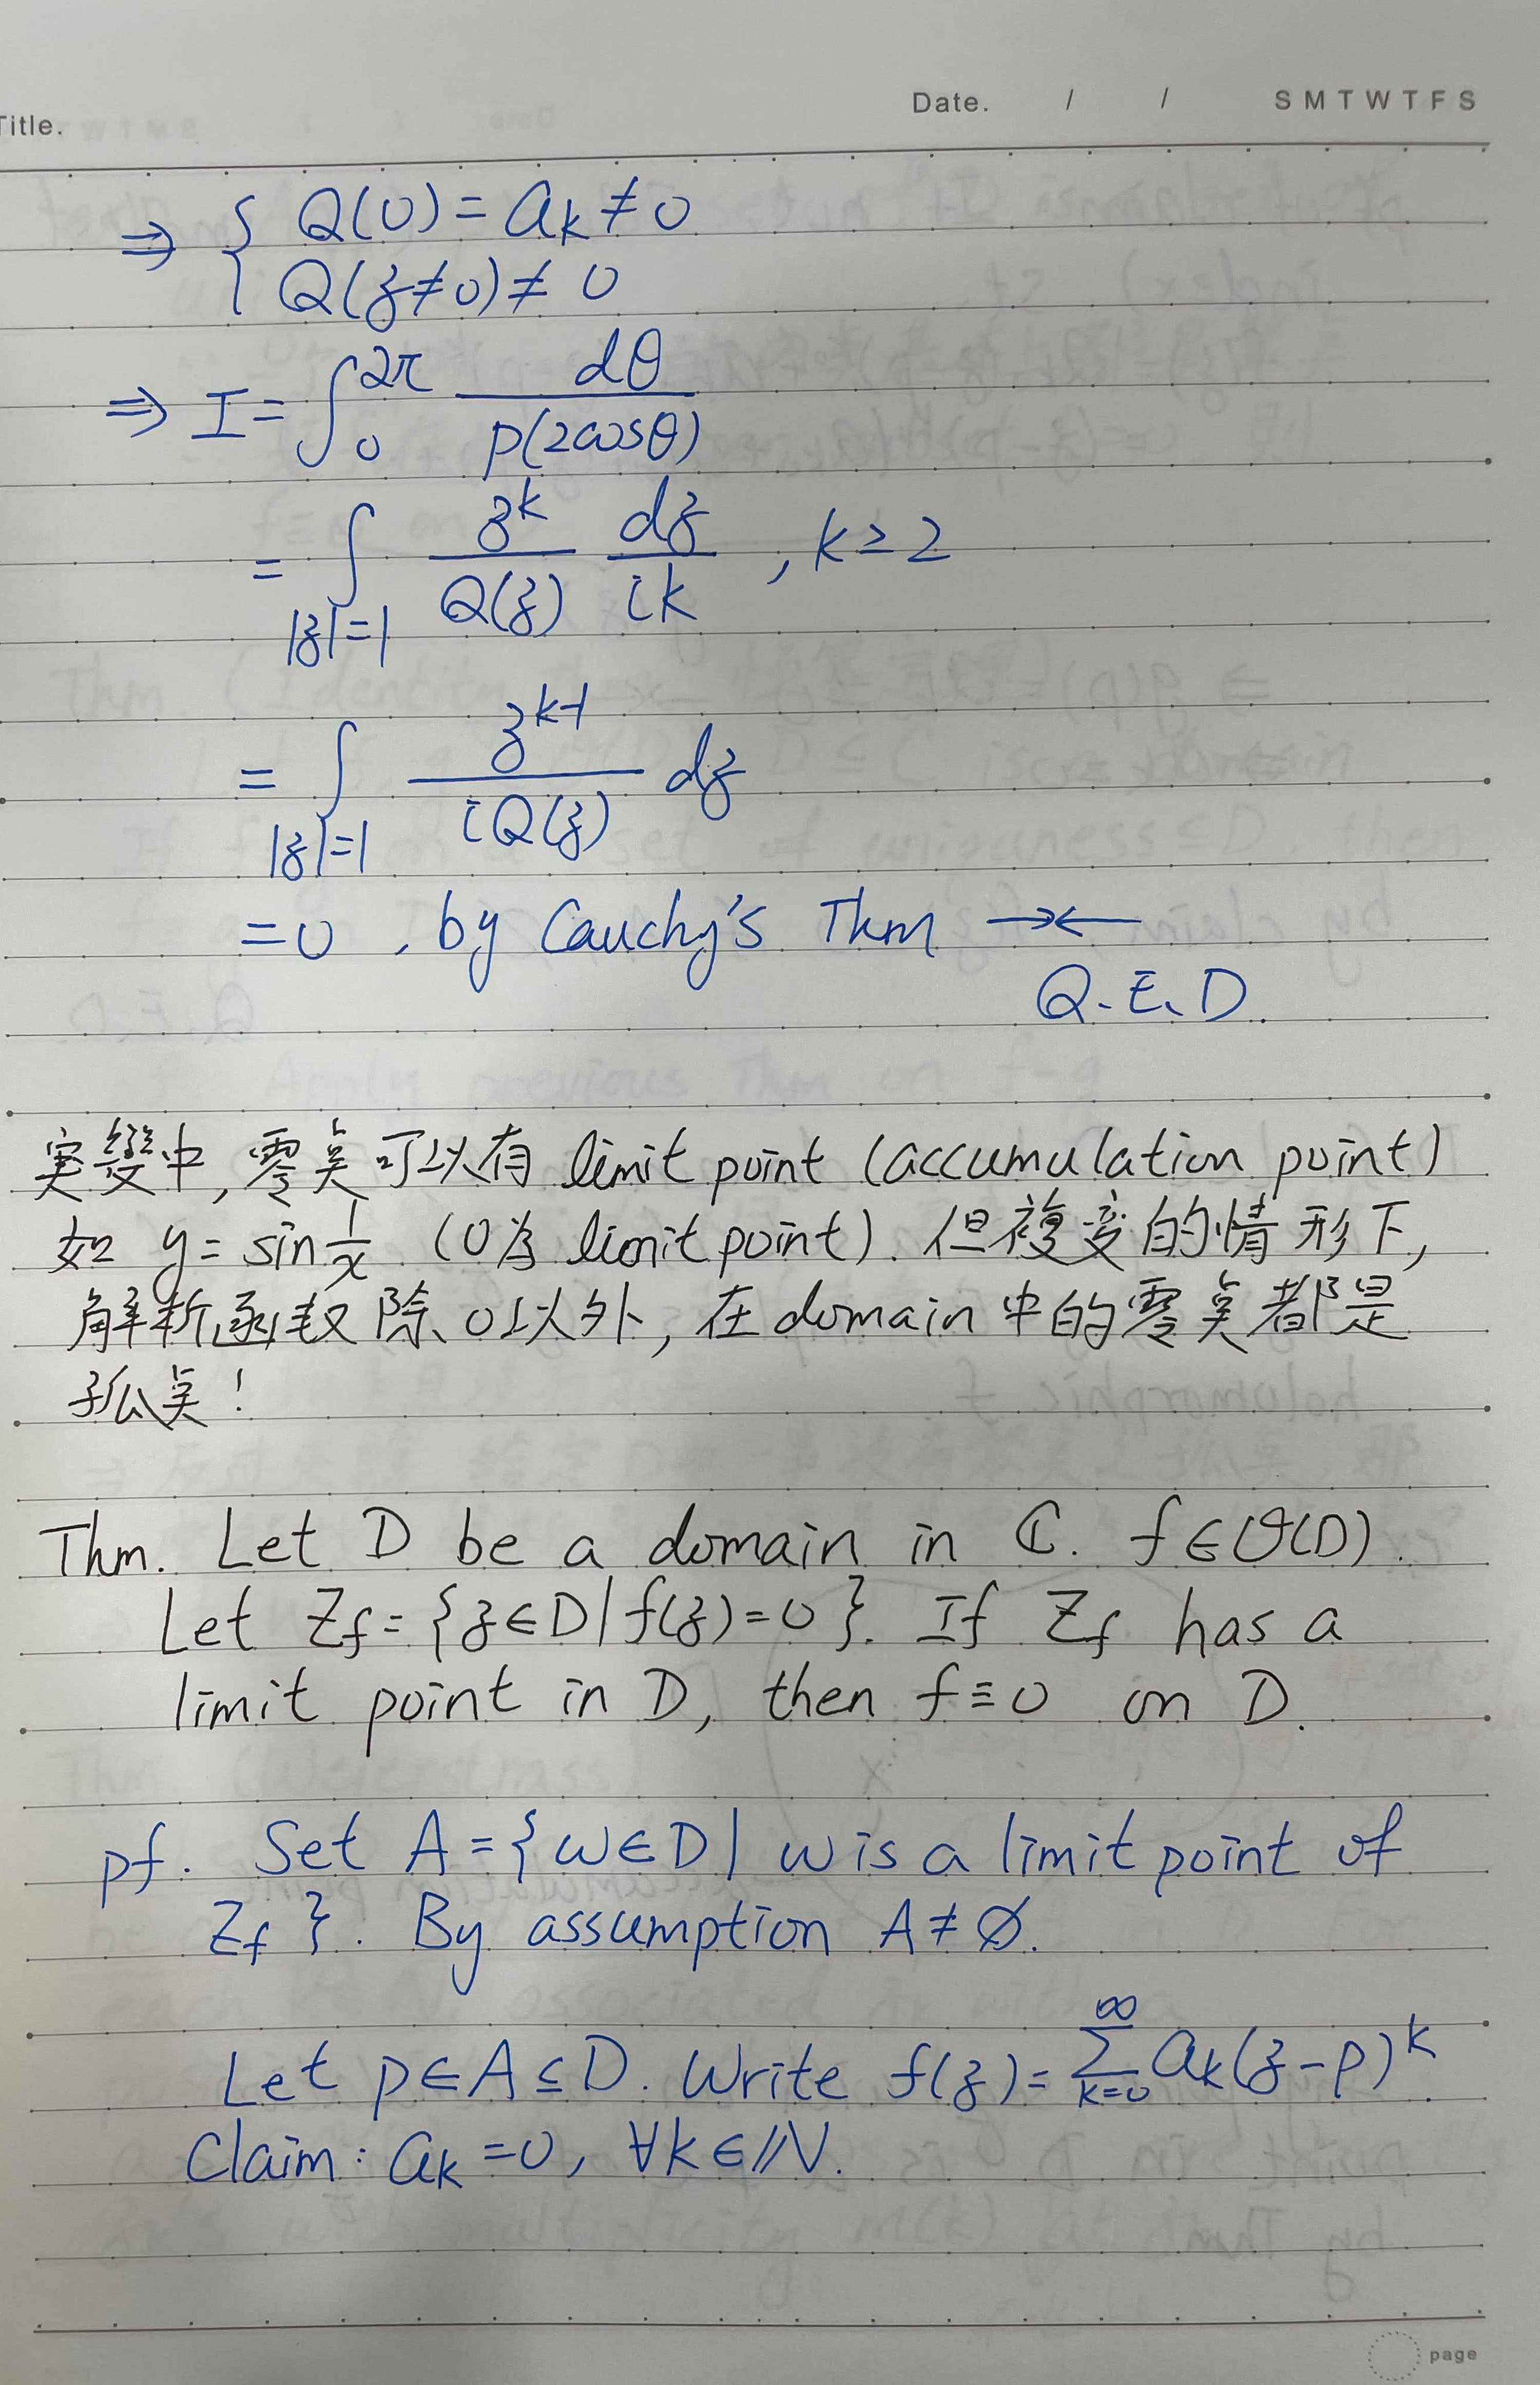 Title.
Date. / / S M T W T F S
⇒ { Q(0) = a_k ≠ 0
Q(z≠0) ≠ 0
⇒ I = ∫_0^{2π} dθ / p(2cosθ)
= ∫_{|z|=1} z^k / Q(z) dz / ik , k ≥ 2
= ∫_{|z|=1} z^{k-1} / iQ(z) dz
= 0 , by Cauchy's Thm →←
Q.E.D.
実變中, 零奌可以有 limit point (accumulation point)
如 y = sin 1/x (0為 limit point). 但複变的情形下,
解析函数除0以外, 在 domain 中的零奌都是
孤奌!
Thm. Let D be a domain in ℂ. f ∈ 𝒪(D).
Let Z_f = {z ∈ D | f(z) = 0}. If Z_f has a
limit point in D, then f ≡ 0 on D.
pf. Set A = {w ∈ D | w is a limit point of
Z_f}. By assumption A ≠ ∅.
Let p ∈ A ⊆ D. Write f(z) = Σ_{k=0}^∞ a_k (z-p)^k.
Claim: a_k = 0, ∀k ∈ ℕ.
page